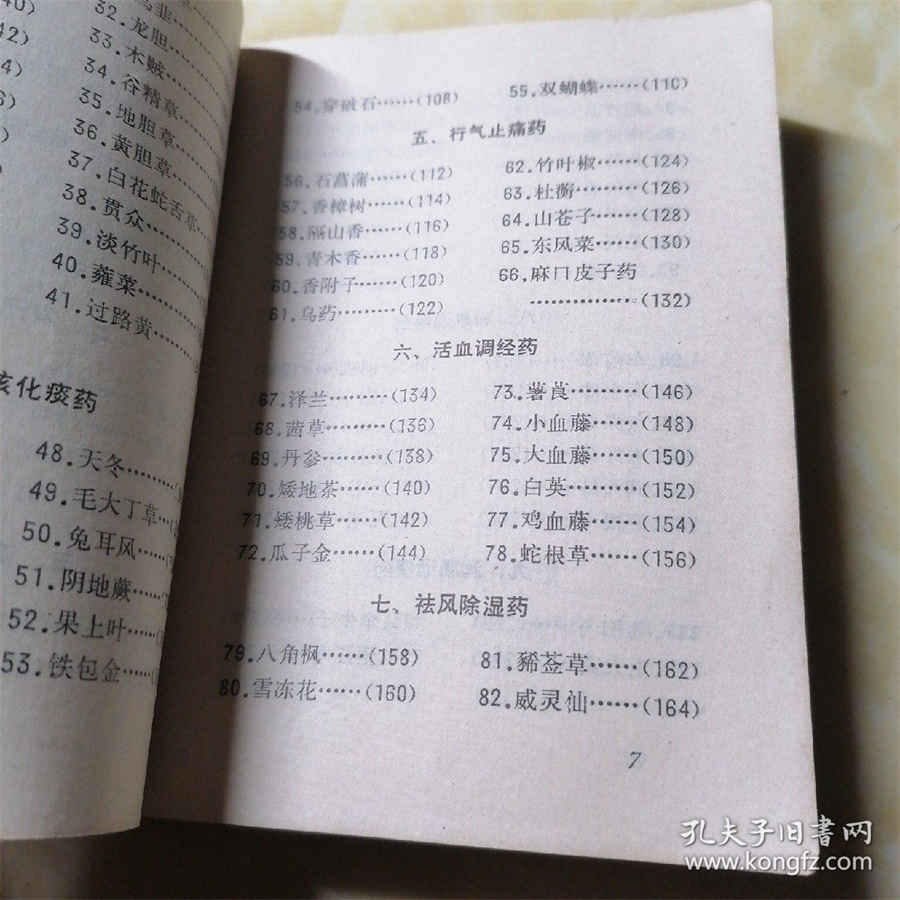 40)
42)
4)
6)
32.龙胆……
33.木贼……
34.谷精草…
35.地胆草…
36.黄胆草…
37.白花蛇舌草
38.贯众……
39.淡竹叶…
40.蕹菜……
41.过路黄…
化痰药
48.天冬……
49.毛大丁草…
50.兔耳风……
51.阴地蕨……
52.果上叶……
53.铁包金……
54.穿破石……(108) 55.双蝴蝶……(110)
五、行气止痛药
56.石菖蒲……(112) 62.竹叶椒……(124)
57.香樟树……(114) 63.杜衡………(126)
58.隔山香……(116) 64.山苍子……(128)
59.青木香……(118) 65.东风菜……(130)
60.香附子……(120) 66.麻口皮子药
61.乌药………(122) ……………(132)
六、活血调经药
67.泽兰………(134) 73.薯莨………(146)
68.茜草………(136) 74.小血藤……(148)
69.丹参………(138) 75.大血藤……(150)
70.矮地茶……(140) 76.白英………(152)
71.矮桃草……(142) 77.鸡血藤……(154)
72.瓜子金……(144) 78.蛇根草……(156)
七、祛风除湿药
79.八角枫……(158) 81.豨莶草……(162)
80.雪冻花……(160) 82.威灵仙……(164)
7
孔夫子旧书网
www.kongfz.com